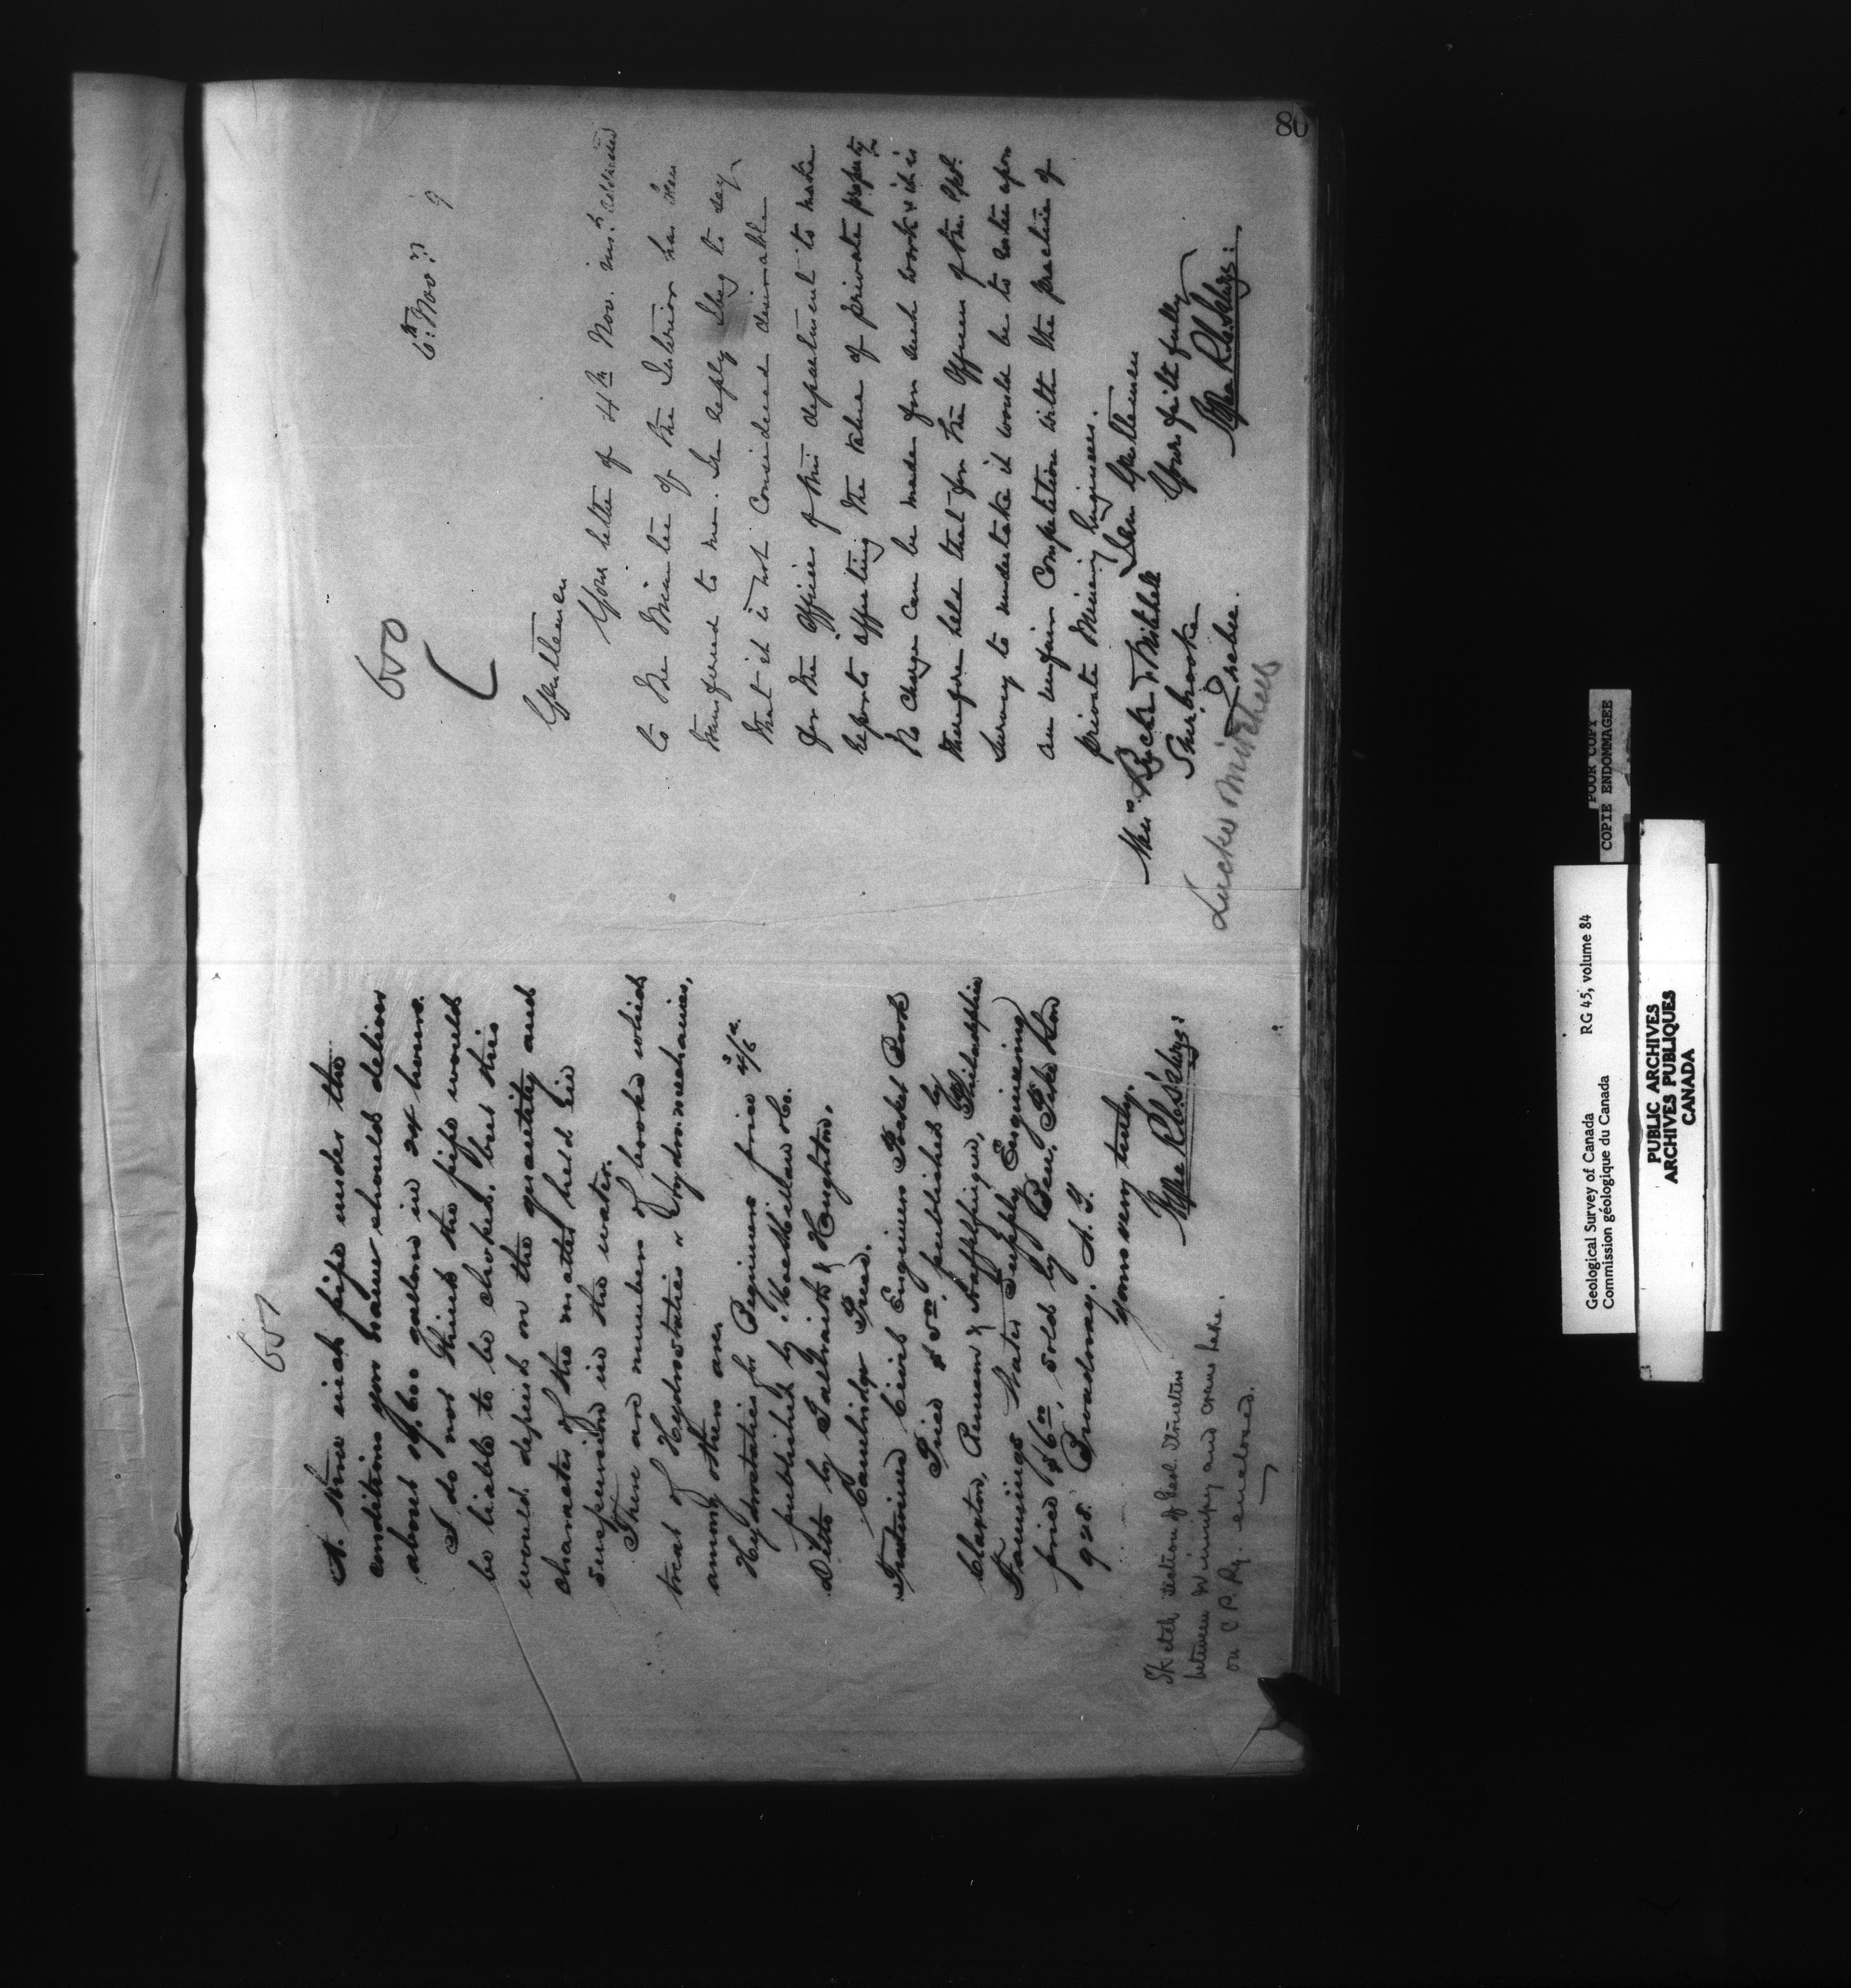 657
A three inch pipe under the
conditions you name should deliver
about 19,600 gallons in 24 hours.
I do not think the pipe would
be liable to be choked, but this
would depend on the quantity and
character of the matter held in
suspension in the water.
There are numbers of books which
treat of Hydrostatics & Hydromechanics,
among others are
Hydrostatics for Beginners price 4/6
published by MacMillan & Co.
Ditto by Galbraith & Haughton.
Cambridge Press.
Trautwines Civil Engineers Pocket Book
Price $5.00, published by
Claxton, Remsen & Haffelfinger, Philadelphia
Fannings Water Supply Engineering
price $6.00, sold by Ben. Pike Son
928. Broadway. N. Y.
yours very truly.
Sketch section of Geol. Structure
between Winnipeg and Crane Lake.
on C. P. Ry. enclosed.
80
650
6th Nov.
9
Gentlemen
Your letter of 4th Nov. inst. addressed
to the Minister of the Interior has been
transferred to me. In reply I beg to say
that it is not considered desirable
for the Officers of this department to make
reports affecting the value of private property
No charge can be made for such work & it is
therefore held that for the Officers of the Geol.
Survey to undertake it would be to enter upon
an unfair Competition with the practice of
private Mining Engineers.
I am Gentlemen
Yours faithfully
Sherbrooke
Quebec.
POOR COPY
COPIE ENDOMMAGEE
Geological Survey of Canada RG 45, volume 84
Commission géologique du Canada
PUBLIC ARCHIVES
ARCHIVES PUBLIQUES
CANADA